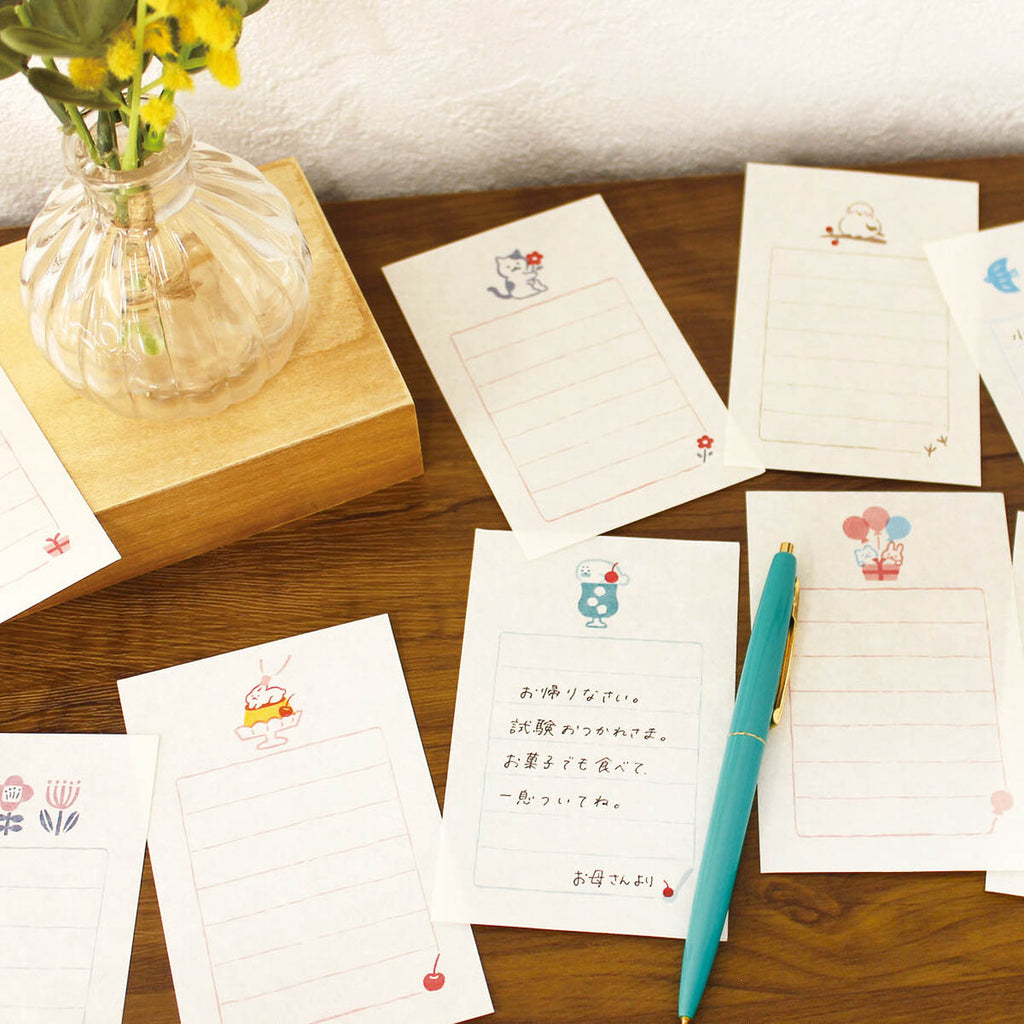 お帰りなさい。
試験おつかれさま。
お菓子でも食べて、
一息ついてね。
お母さんより